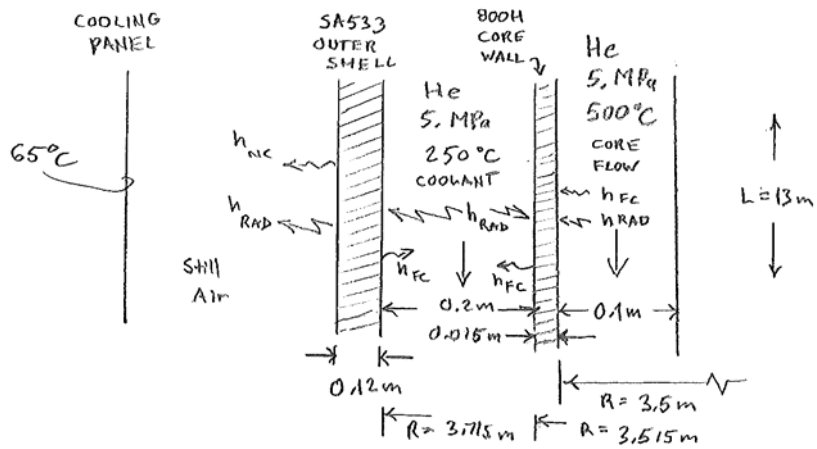 COOLING
PANEL
SA533
OUTER
SHELL
800H
CORE
WALL
He
5. MPa
500°C
CORE
FLOW
He
5. MPa
250°C
COOLANT
65°C
hNC
hRAD
hRAD
hFC
hRAD
L = 13 m
Still
Air
hFC
hFC
0.2m
0.1m
0.015m
0.12m
R = 3.5m
R = 3.715m
R = 3.515m